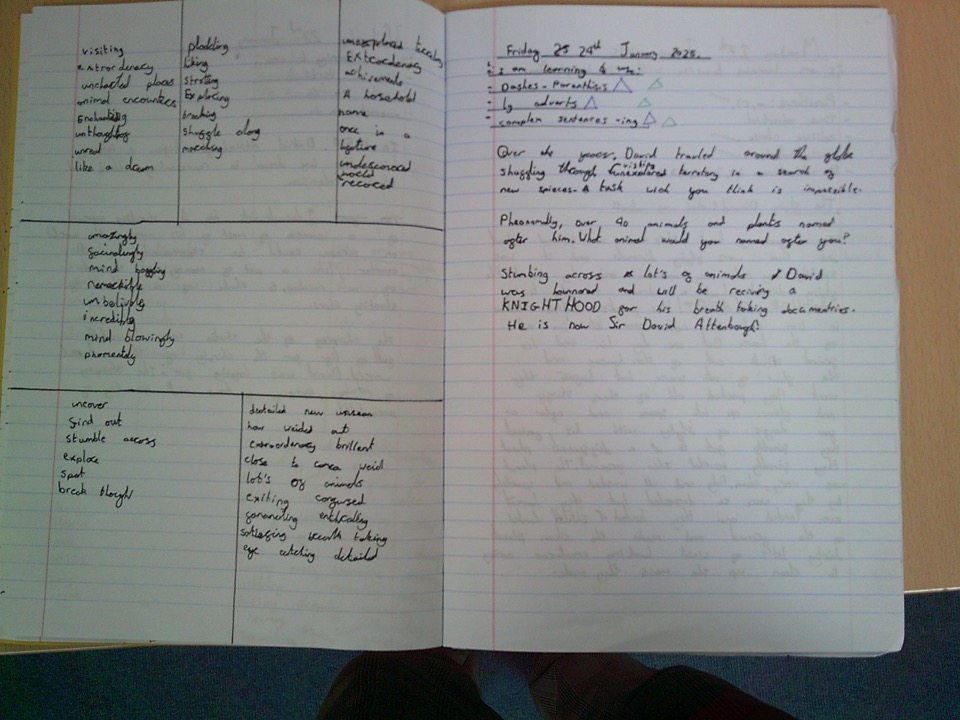 visiting
extrordenacy
uncharted places
animal encounters
Enchanting
unthoughts
unred
like a dream
plodding
liking
strotting
Exploring
tracking
shuggle along
unexplored
Extrordenacy
achivements
A household
name
once in a
undescovered
world
recorced
amazingly
facinatingly
mind boggling
incredibly
mind blowingly
phomentaly
uncover
find out
stumble across
explore
spot
break though
deatailed new unseen
how weided out
extraordenacy brillent
close to
lot's of animals
exiting
breath taking
eye catching detailed
Friday 25 24th January 2025.
I am learning to use:
- Dashes - Parenthisis
- ly adverbs
- complex sentences -ing
Over the years, David travled around the globe
visiting
shuggling through unexplored territory in a search of
new spieces - A task wich you think is impossible.
Pheonomdly, over 40 animals and plants named
after him. What animal would you named after you?
Stumbing across lot's of animals David
was hounnored and will be reciving a
KNIGHTHOOD for his breath taking documentries.
He is now Sir David Attenbough.